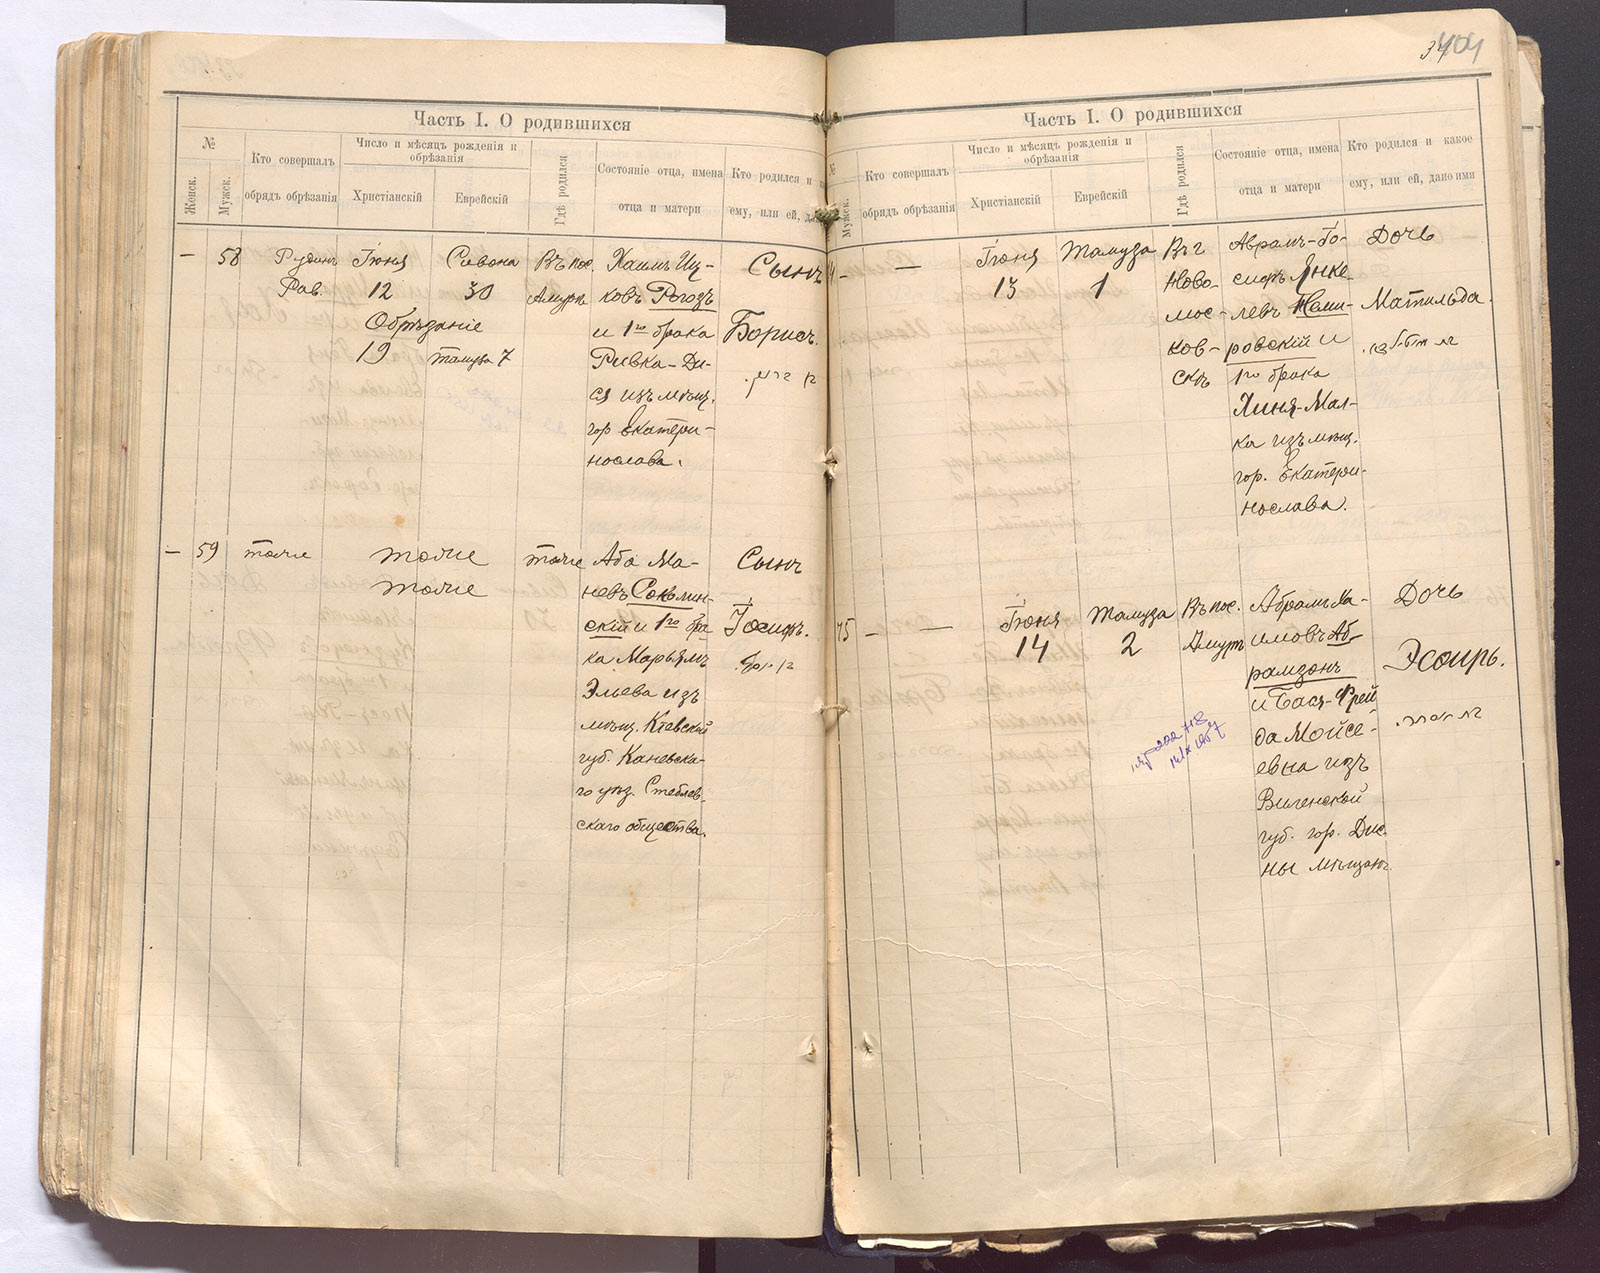 404
Часть I. О родившихся
№
Женск.
Мужск.
Кто совершалъ
обрядъ обрѣзанія
Число и мѣсяцъ рожденія и
обрѣзанія
Христіанскій
Еврейскій
Гдѣ родился
Состояніе отца, имена
отца и матери
Кто родился и
ему, или ей,
—
58
Рудинъ
Рав.
Іюня
12
Обрѣзаніе
19
Сивона
30
Тамуза 7
Въ пос.
Амуръ
Хаимъ Иц-
ковъ Рогозъ
и 1го брака
Ривка-Ди-
ся изъ мѣщ.
гор Екатери-
нослава.
Сынъ
Борисъ.
—
59
тоже
тоже
тоже
тоже
Аба Ма-
невъ Соколин-
скій и 1го бра
ка Марьямъ
Эльева изъ
мѣщ. Кіевской
губ. Каневска-
го уѣз. Стеблев-
скаго общества.
Сынъ
Іосифъ.
Часть I. О родившихся
№
Мужск.
Кто совершалъ
обрядъ обрѣзанія
Число и мѣсяцъ рожденія и
обрѣзанія
Христіанскій
Еврейскій
Гдѣ родился
Состояніе отца, имена
отца и матери
Кто родился и какое
ему, или ей, дано имя
4
—
—
Іюня
13
Тамуза
1
Въ г
Ново-
мос-
ков-
скъ
Аврамъ-Іо-
сифъ Янке-
левъ Неми-
ровскій и
1го брака
Хиня-Мал-
ка изъ мѣщ.
гор. Екатери-
нослава.
Дочь
Матильда.
75
—
—
Іюня
14
Тамуза
2
Въ пос.
Амуръ
Абрамъ Ха-
имовъ Аб-
рамзонъ
и Бася-Фрей
да Мойсе-
евна изъ
Виленской
губ. гор. Дис-
ны мѣщанъ.
Дочь
Эсѳирь.